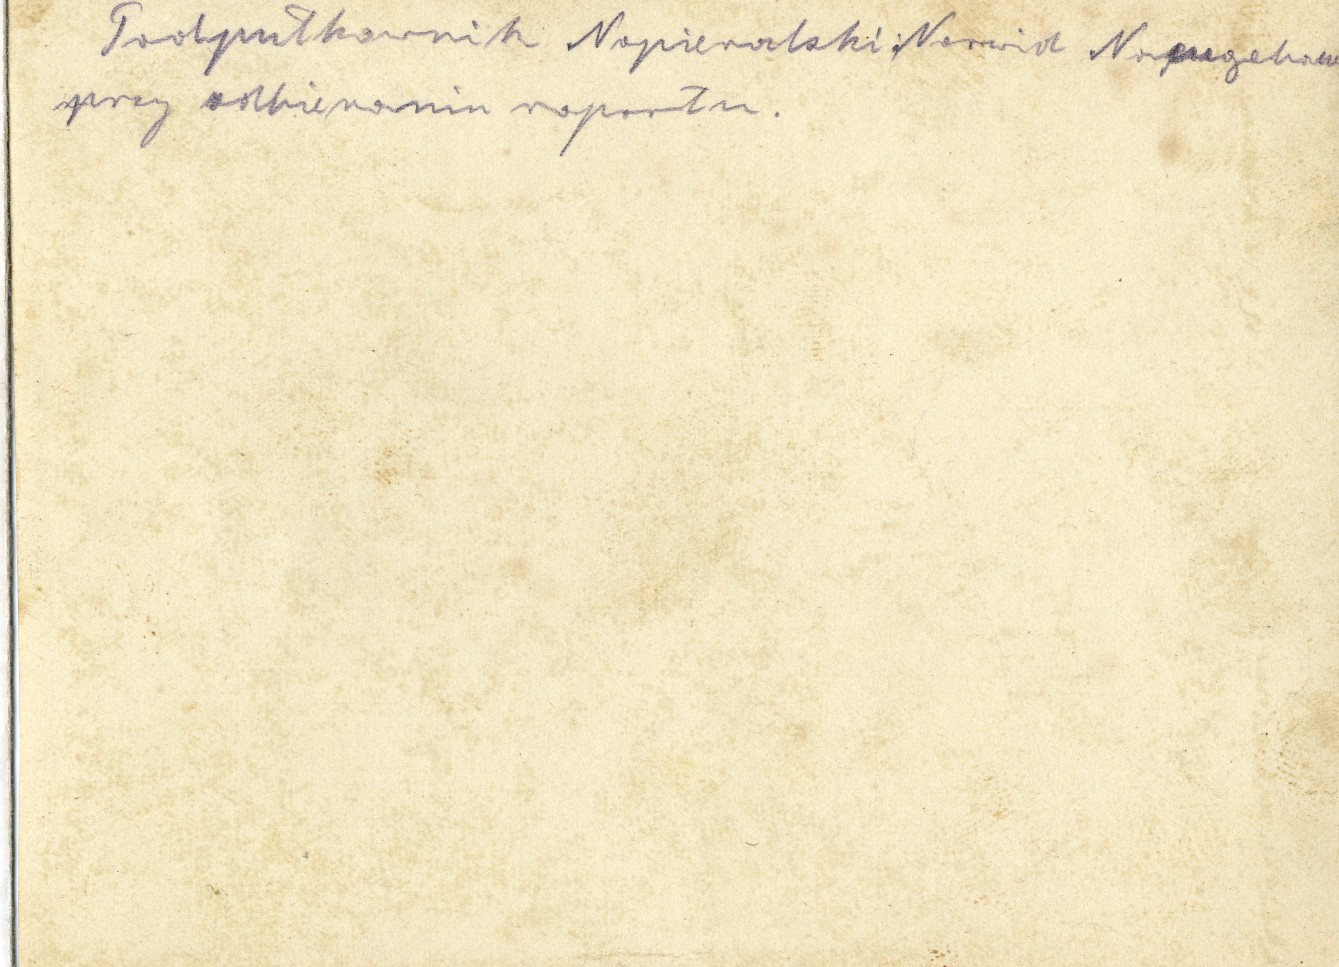 Podpułkownik Napieralski i Norwid
przy odbieraniu raportu.